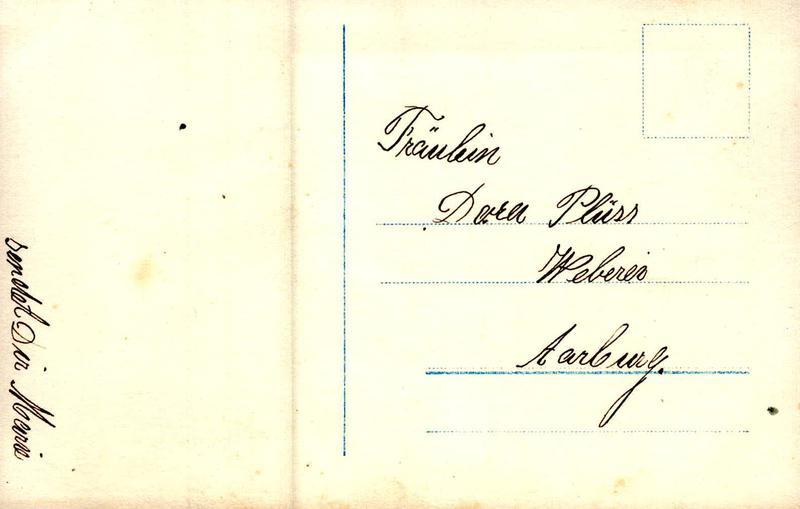 Fräulein
Dora Plüss
Weberei
Aarburg.
sendet Dir Marie